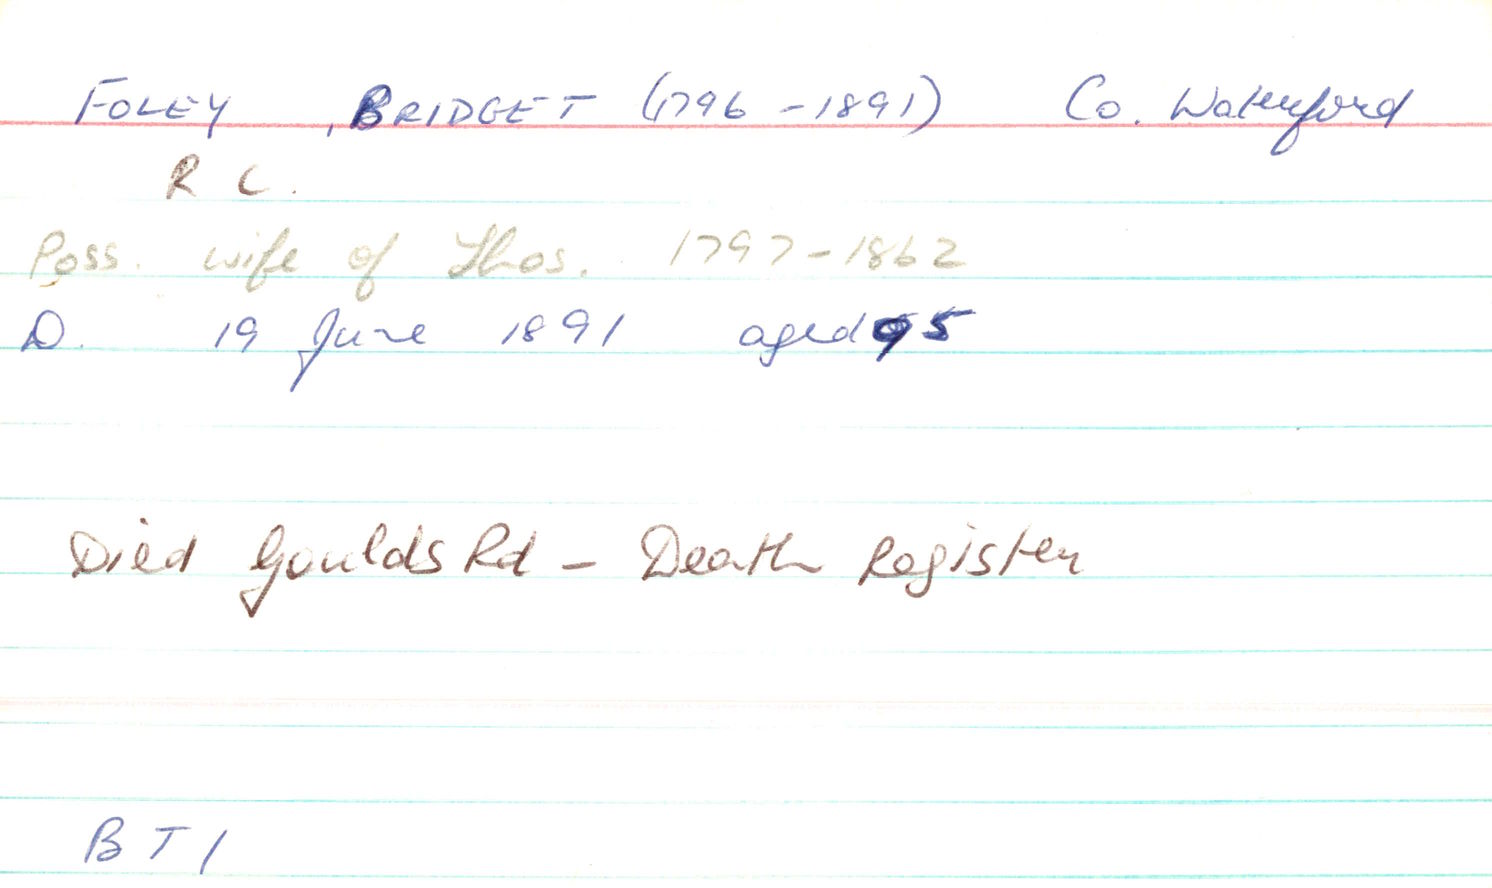 FOLEY, BRIDGET (1796-1891) Co. Waterford
R C.
Poss. wife of Thos. 1797-1862
D. 19 June 1891 aged 95
Died Goulds Rd - Death Register
B T 1